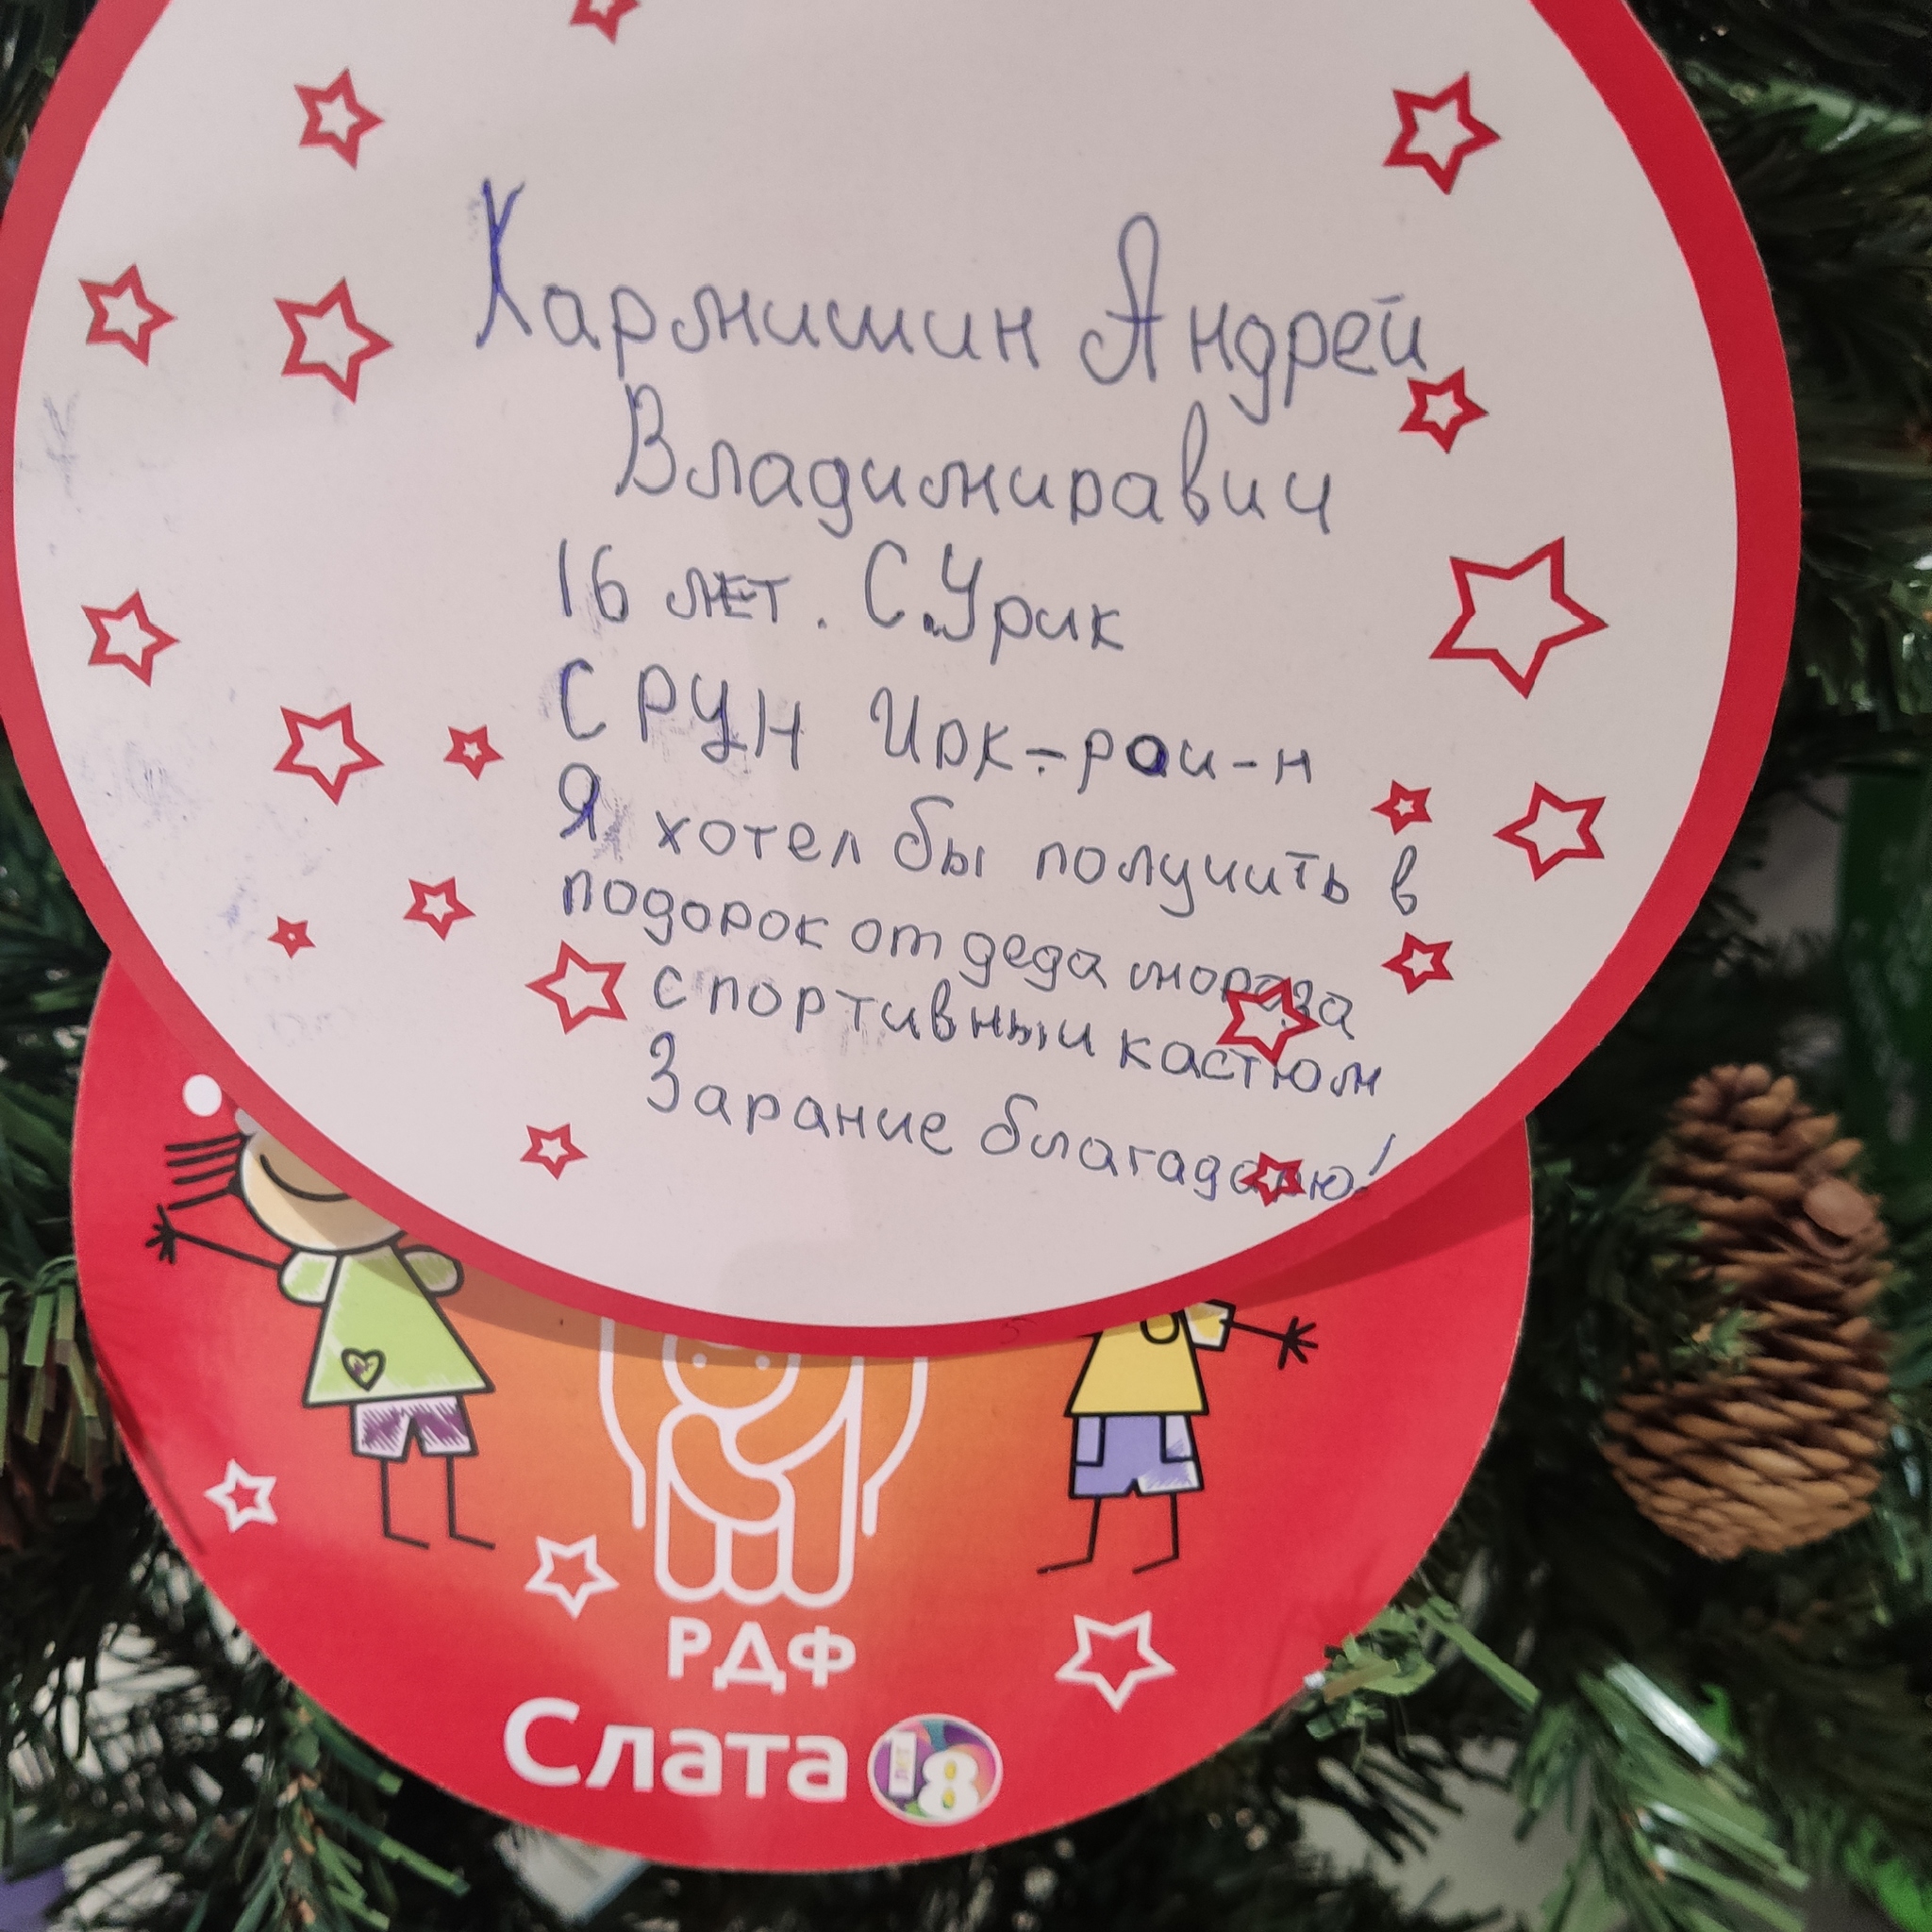 Кармишин Андрей
Владимиравич
16 лет. С.Урик
СРЦН Ирк-раи-н
Я хотел бы получить в
подорок от деда мороза
спортивныи кастюм
Зарание благадарю!
РДФ
Слата 18